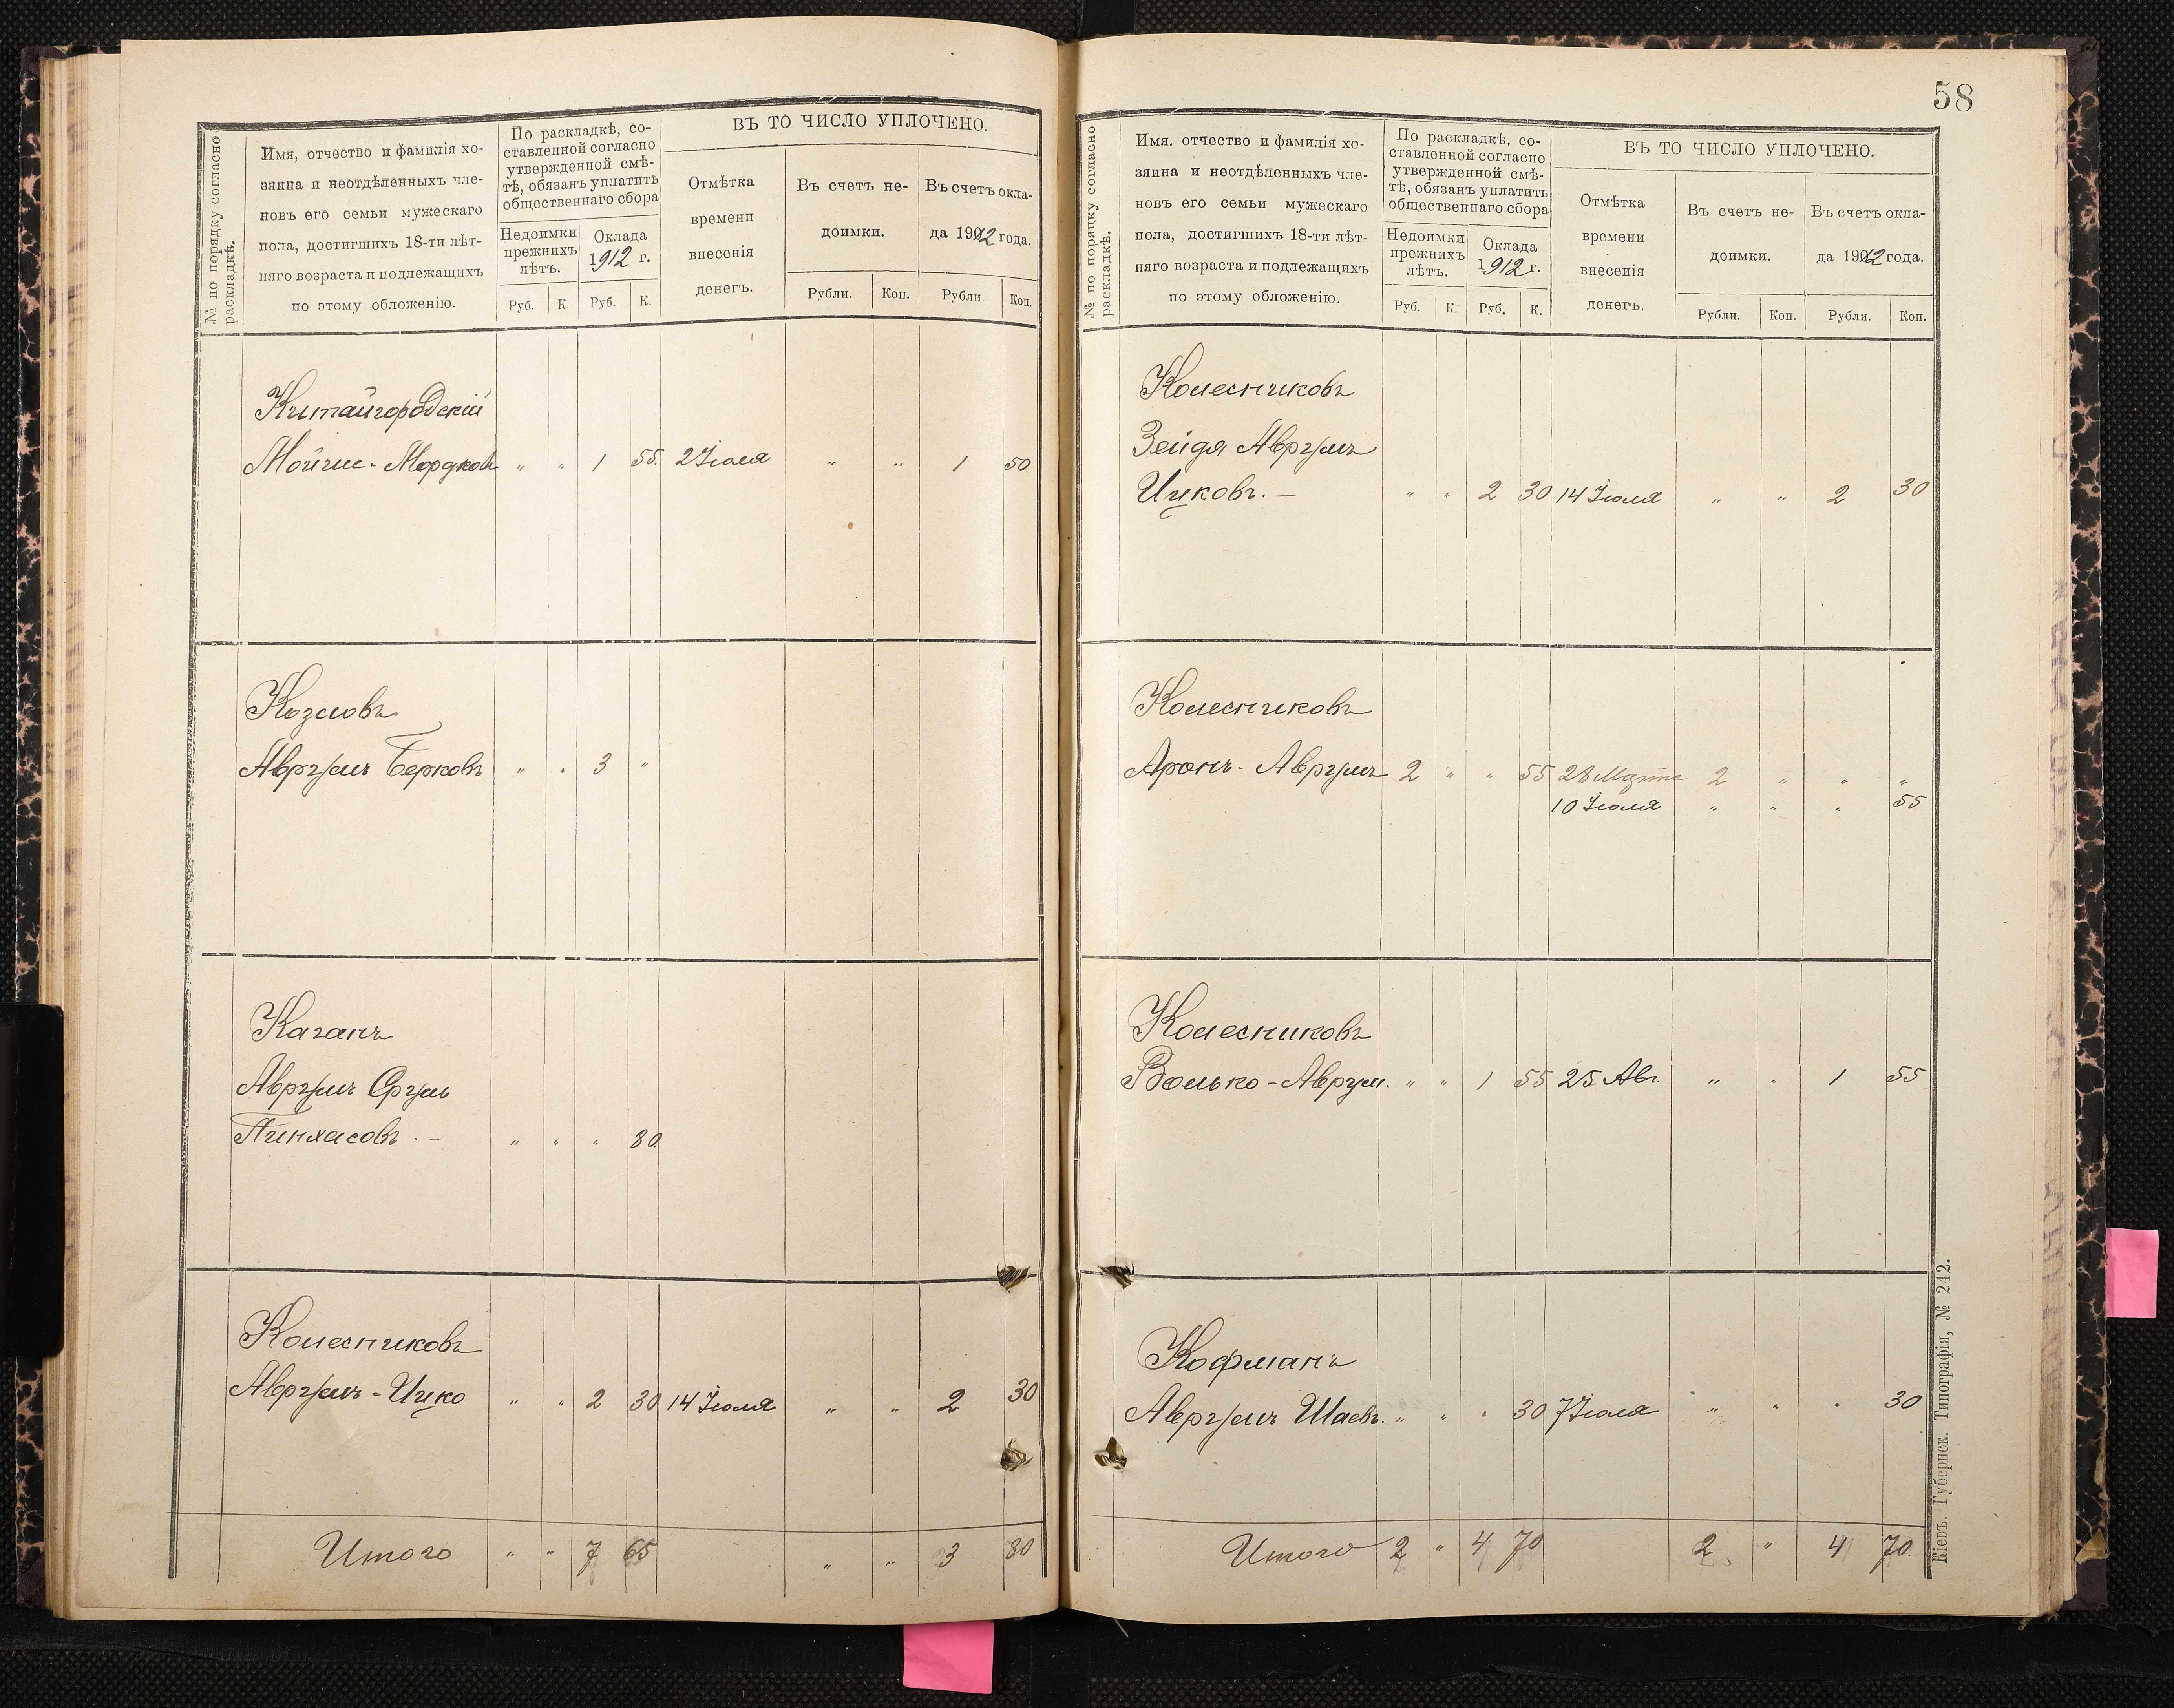 № по порядку согласно раскладкѣ.
Имя, отчество и фамилія хо-
зяина и неотдѣленныхъ чле-
новъ его семьи мужескаго
пола, достигшихъ 18-ти лѣт-
няго возраста и подлежащихъ
по этому обложенію.
По раскладкѣ, со-
ставленной согласно
утвержденной смѣ-
тѣ, обязанъ уплатить
общественнаго сбора
Недоимки
прежнихъ
лѣтъ.
Оклада
1912 г.
Руб. К. Руб. К.
ВЪ ТО ЧИСЛО УПЛОЧЕНО.
Отмѣтка
времени
внесенія
денегъ.
Въ счетъ не-
доимки.
Въ счетъ окла-
да 1912 года.
Рубли. Коп. Рубли. Коп.
Китайгородскій
Мойше-Мордков " " 1 55. 2 Іюля " " 1 50
Козловъ
Аврумъ Берковъ " " 3 "
Каганъ
Аврумъ Срулъ
Пинхасовъ. — " " " 80
Колесниковъ
Аврумъ-Ицко " " 2 30 14 Іюля " " 2 30
Итого " " 7 65 " " 3 80
58
№ по порядку согласно раскладкѣ.
Имя, отчество и фамилія хо-
зяина и неотдѣленныхъ чле-
новъ его семьи мужескаго
пола, достигшихъ 18-ти лѣт-
няго возраста и подлежащихъ
по этому обложенію.
По раскладкѣ, со-
ставленной согласно
утвержденной смѣ-
тѣ, обязанъ уплатить
общественнаго сбора
Недоимки
прежнихъ
лѣтъ.
Оклада
1912 г.
Руб. К. Руб. К.
ВЪ ТО ЧИСЛО УПЛОЧЕНО.
Отмѣтка
времени
внесенія
денегъ.
Въ счетъ не-
доимки.
Въ счетъ окла-
да 1912 года.
Рубли. Коп. Рубли. Коп.
Колесниковъ
Зейдя Аврумъ
Ицковъ. — " " 2 30 14 Іюля " " 2 30
Колесниковъ
Аронъ-Аврумъ 2 " " 55 28 Марта 2 " " "
10 Іюля " " " 55
Колесниковъ
Волько-Аврум. " " 1 55 25 Авг. " " 1 55
Кофманъ
Аврумъ Шаевъ. " " " 30 7 Іюля " " " 30
Итого 2 " 4 70 2 " 4 70
Кіевъ. Губернск. Типографія, № 242.